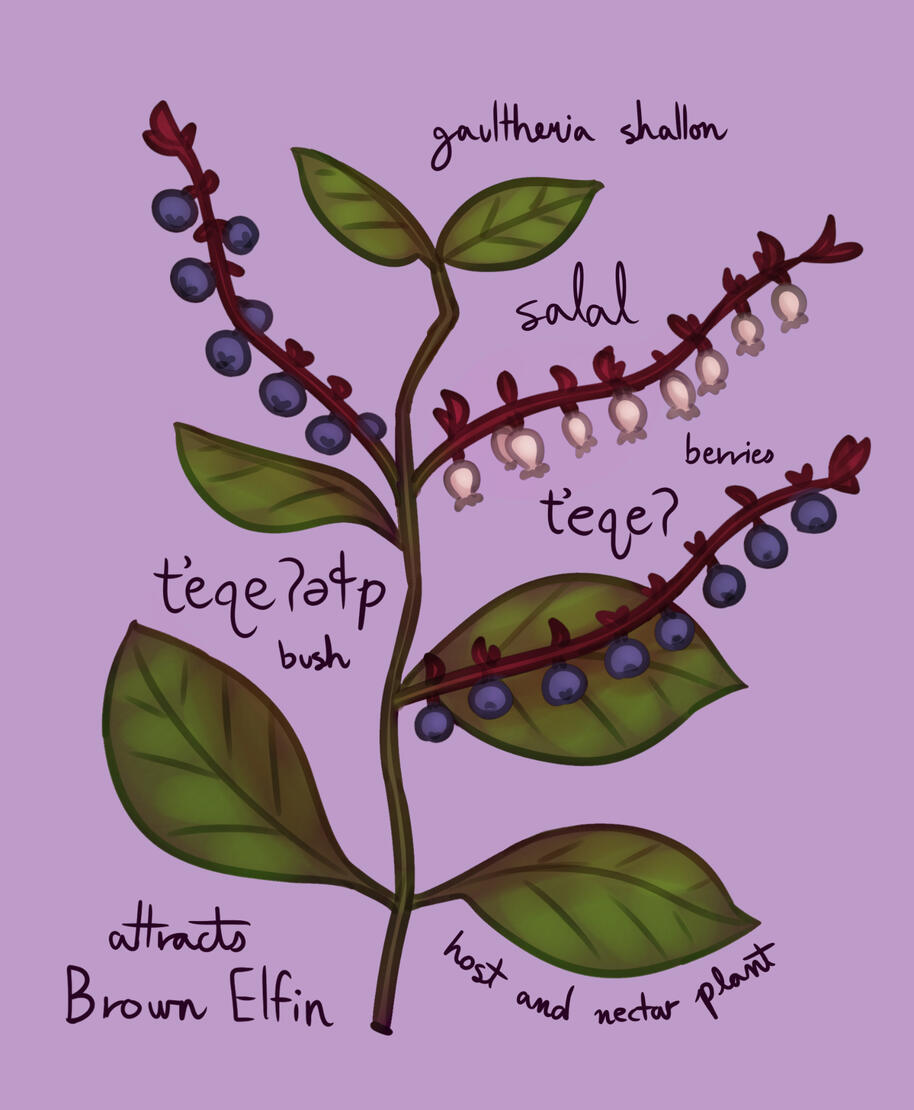 gaultheria shallon
salal
berries
t̓eqeʔ
t̓eqeʔəɬp
bush
attracts
Brown Elfin
host and nectar plant